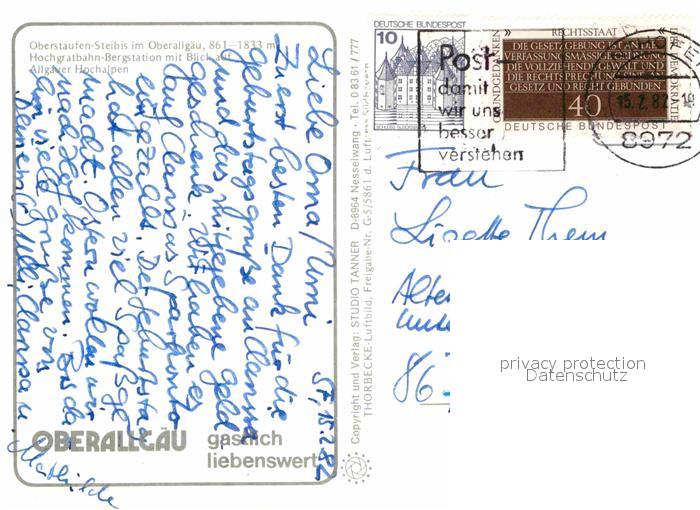 Oberstaufen-Steibis im Oberallgäu, 861—1833 m
Hochgratbahn-Bergstation mit Blick auf
Allgäuer Hochalpen
Sf, 15.2.82
Liebe Oma/Mimi
Zuerst besten Dank für die
Geburtstagsgrüße an Clarissa
und das mitgegebene Geld
geschenk. Wir haben es
auf Clarissas Sparkonto
eingezahlt. Der Geburtstag
hat allen viel Spaß ge
macht. Ostern wollen wir
nach kommen. Bis da
hin viele Grüße von
Deinem Clarissa u.
Mathilde
OBERALLGÄU gastlich
liebenswert
Copyright und Verlag: STUDIO TANNER D-8964 Nesselwang · Tel. 0 83 61 / 777
THORBECKE-Luftbild, Freigabe-Nr. G-5/5861 d. Luftamt Südbayern
DEUTSCHE BUNDESPOST
10
RECHTSSTAAT
DIE GESETZGEBUNG IST AN DIE
VERFASSUNGSMÄSSIGE ORDNUNG,
DIE VOLLZIEHENDE GEWALT UND
DIE RECHTSPRECHUNG SIND AN
GESETZ UND RECHT GEBUNDEN
40
DEUTSCHE BUNDESPOST
Post
damit
wir uns
besser
verstehen
15.2.82
8972
Frau
Lisette Them
86
privacy protection
Datenschutz